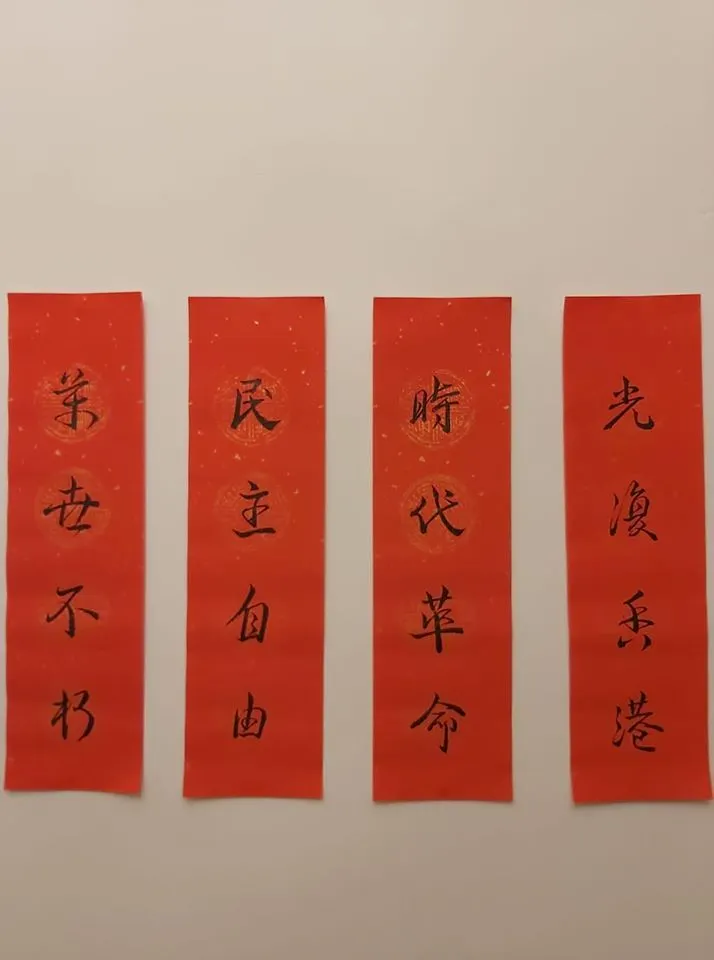 光復香港
時代革命
民主自由
萬世不朽